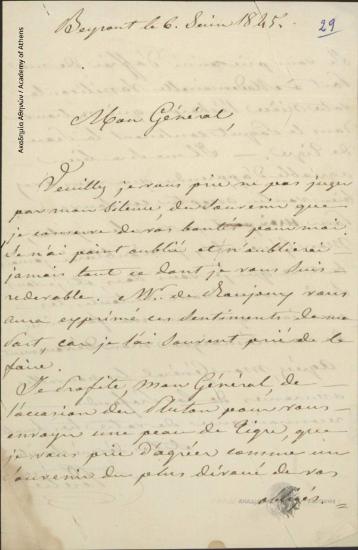 Beyrout le 6. Juin 1845.
29
Mon Général,
Veuillez je vous prie ne pas juger
par mon silence, du souvenir que
je conserve de vos bontés pour moi.
Je n'ai point oublié et n'oublierai
jamais tout ce dont je vous suis
redevable. Mr. de
vous
aura exprimé ces sentiments de ma
part, car je l'ai souvent prié de le
faire.
Je profite, mon Général, de
l'occasion du Pluton pour vous
envoyer une peau de Tigre, que
je vous prie d'agréer comme un
souvenir du plus dévoué de vos
obligés.
Ακαδημία Αθηνών / Academy of Athens